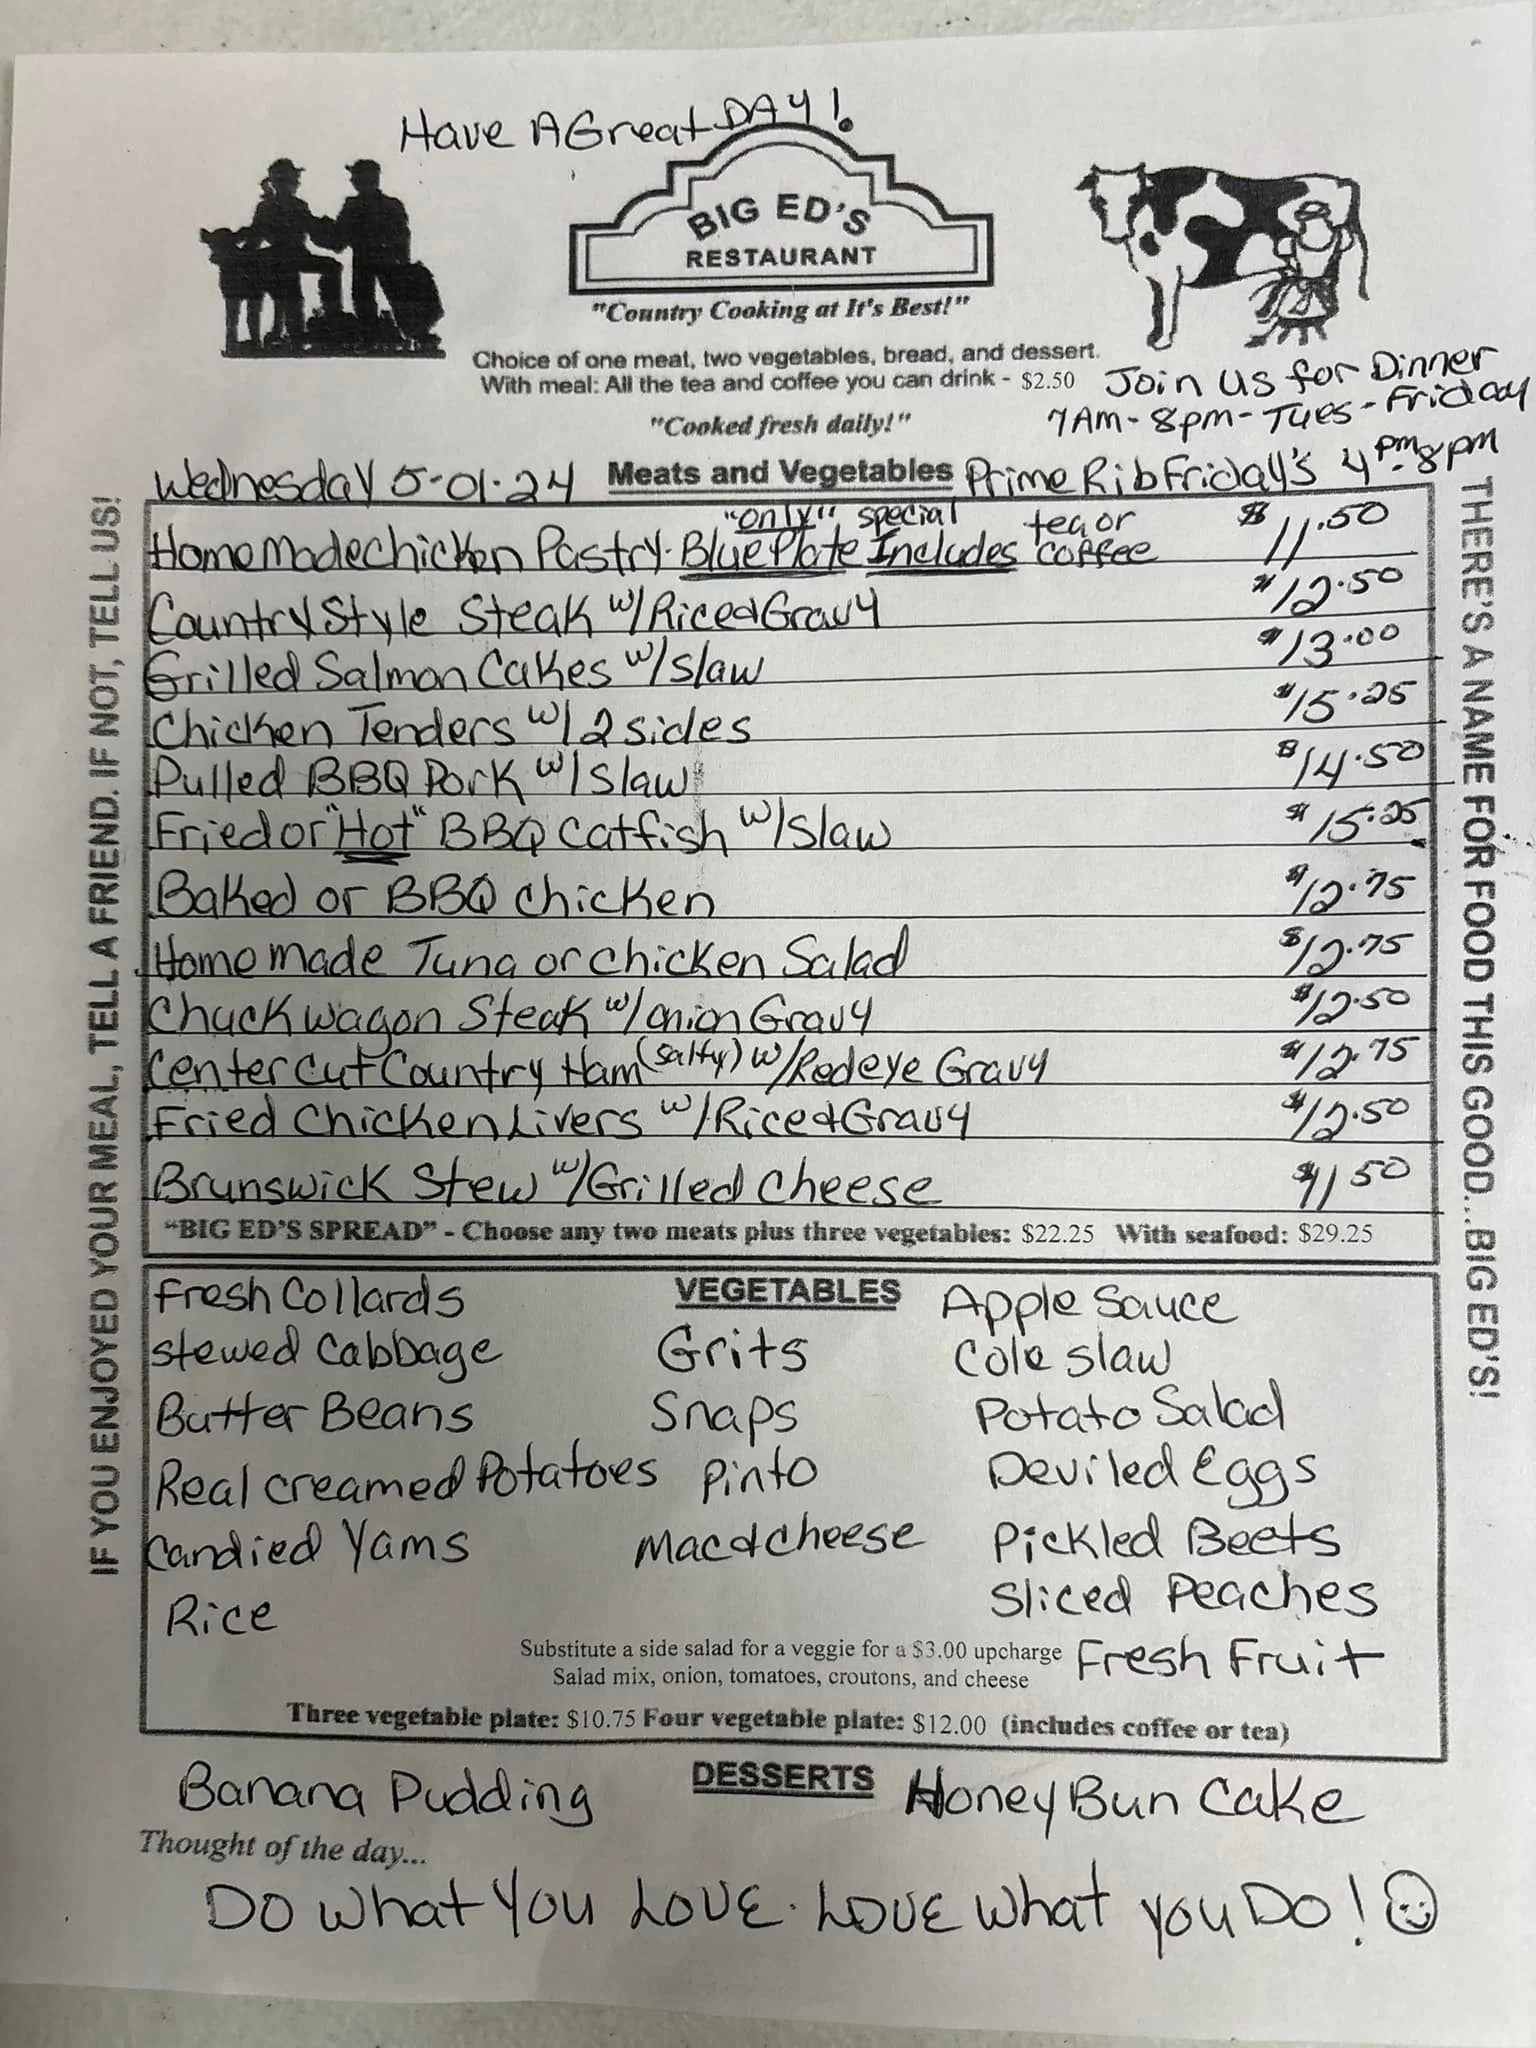 Have A Great DAY!
BIG ED'S
RESTAURANT
"Country Cooking at It's Best!"
Choice of one meat, two vegetables, bread, and dessert.
With meal: All the tea and coffee you can drink - $2.50
"Cooked fresh daily!"
Join us for Dinner
7Am - 8pm - Tues - Friday
Prime Rib Friday's 4pm-8pm
Wednesday 5-01-24
Meats and Vegetables
Homemade chicken Pastry - Blue Plate "only" special Includes tea or coffee $11.50
Country Style Steak w/Rice & Gravy $12.50
Grilled Salmon Cakes w/slaw $13.00
Chicken Tenders w/2 sides $15.25
Pulled BBQ Pork w/slaw $14.50
Fried or "Hot" BBQ catfish w/slaw $15.25
Baked or BBQ chicken $12.75
Homemade Tuna or chicken Salad $12.75
Chuckwagon Steak w/onion Gravy $12.50
Center cut Country Ham (salty) w/Redeye Gravy $12.75
Fried Chicken Livers w/Rice & Gravy $12.50
Brunswick Stew w/Grilled Cheese $11.50
"BIG ED'S SPREAD" - Choose any two meats plus three vegetables: $22.25 With seafood: $29.25
VEGETABLES
Fresh Collards
Stewed Cabbage
Butter Beans
Real creamed Potatoes
Candied Yams
Rice
Grits
Snaps
Pinto
Mac & cheese
Apple Sauce
Cole slaw
Potato Salad
Deviled Eggs
Pickled Beets
Sliced Peaches
Fresh Fruit
Substitute a side salad for a veggie for a $3.00 upcharge
Salad mix, onion, tomatoes, croutons, and cheese
Three vegetable plate: $10.75 Four vegetable plate: $12.00 (includes coffee or tea)
DESSERTS
Banana Pudding
Honey Bun Cake
Thought of the day...
Do what You LOVE. LOVE what you Do!
IF YOU ENJOYED YOUR MEAL, TELL A FRIEND. IF NOT, TELL US!
THERE'S A NAME FOR FOOD THIS GOOD...BIG ED'S!